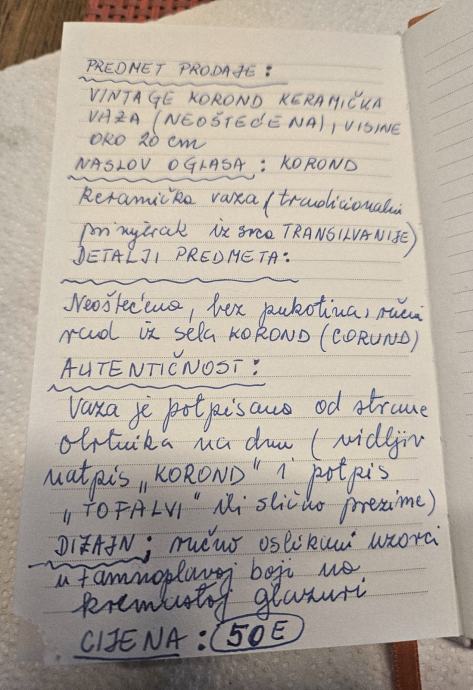 PREDMET PRODAJE :
VINTAGE KOROND KERAMIČKA
VAZA (NEOŠTEĆENA), VISINE
OKO 20 cm
NASLOV OGLASA : KOROND
keramička vaza (tradicionalni
primjerak iz srca TRANSILVANIJE)
DETALJI PREDMETA:
Neoštećena, bez pukotina, ručni
rad iz sela KOROND (CORUND)
AUTENTIČNOST :
Vaza je potpisano od strane
obrtnika na dnu ( vidljiv
natpis „KOROND" i potpis
„TOFALVI" ili slično prezime)
DIZAJN ; ručno oslikani uzorci
u tamnoplavoj boji na
kremastoj glazuri
CIJENA : 50E